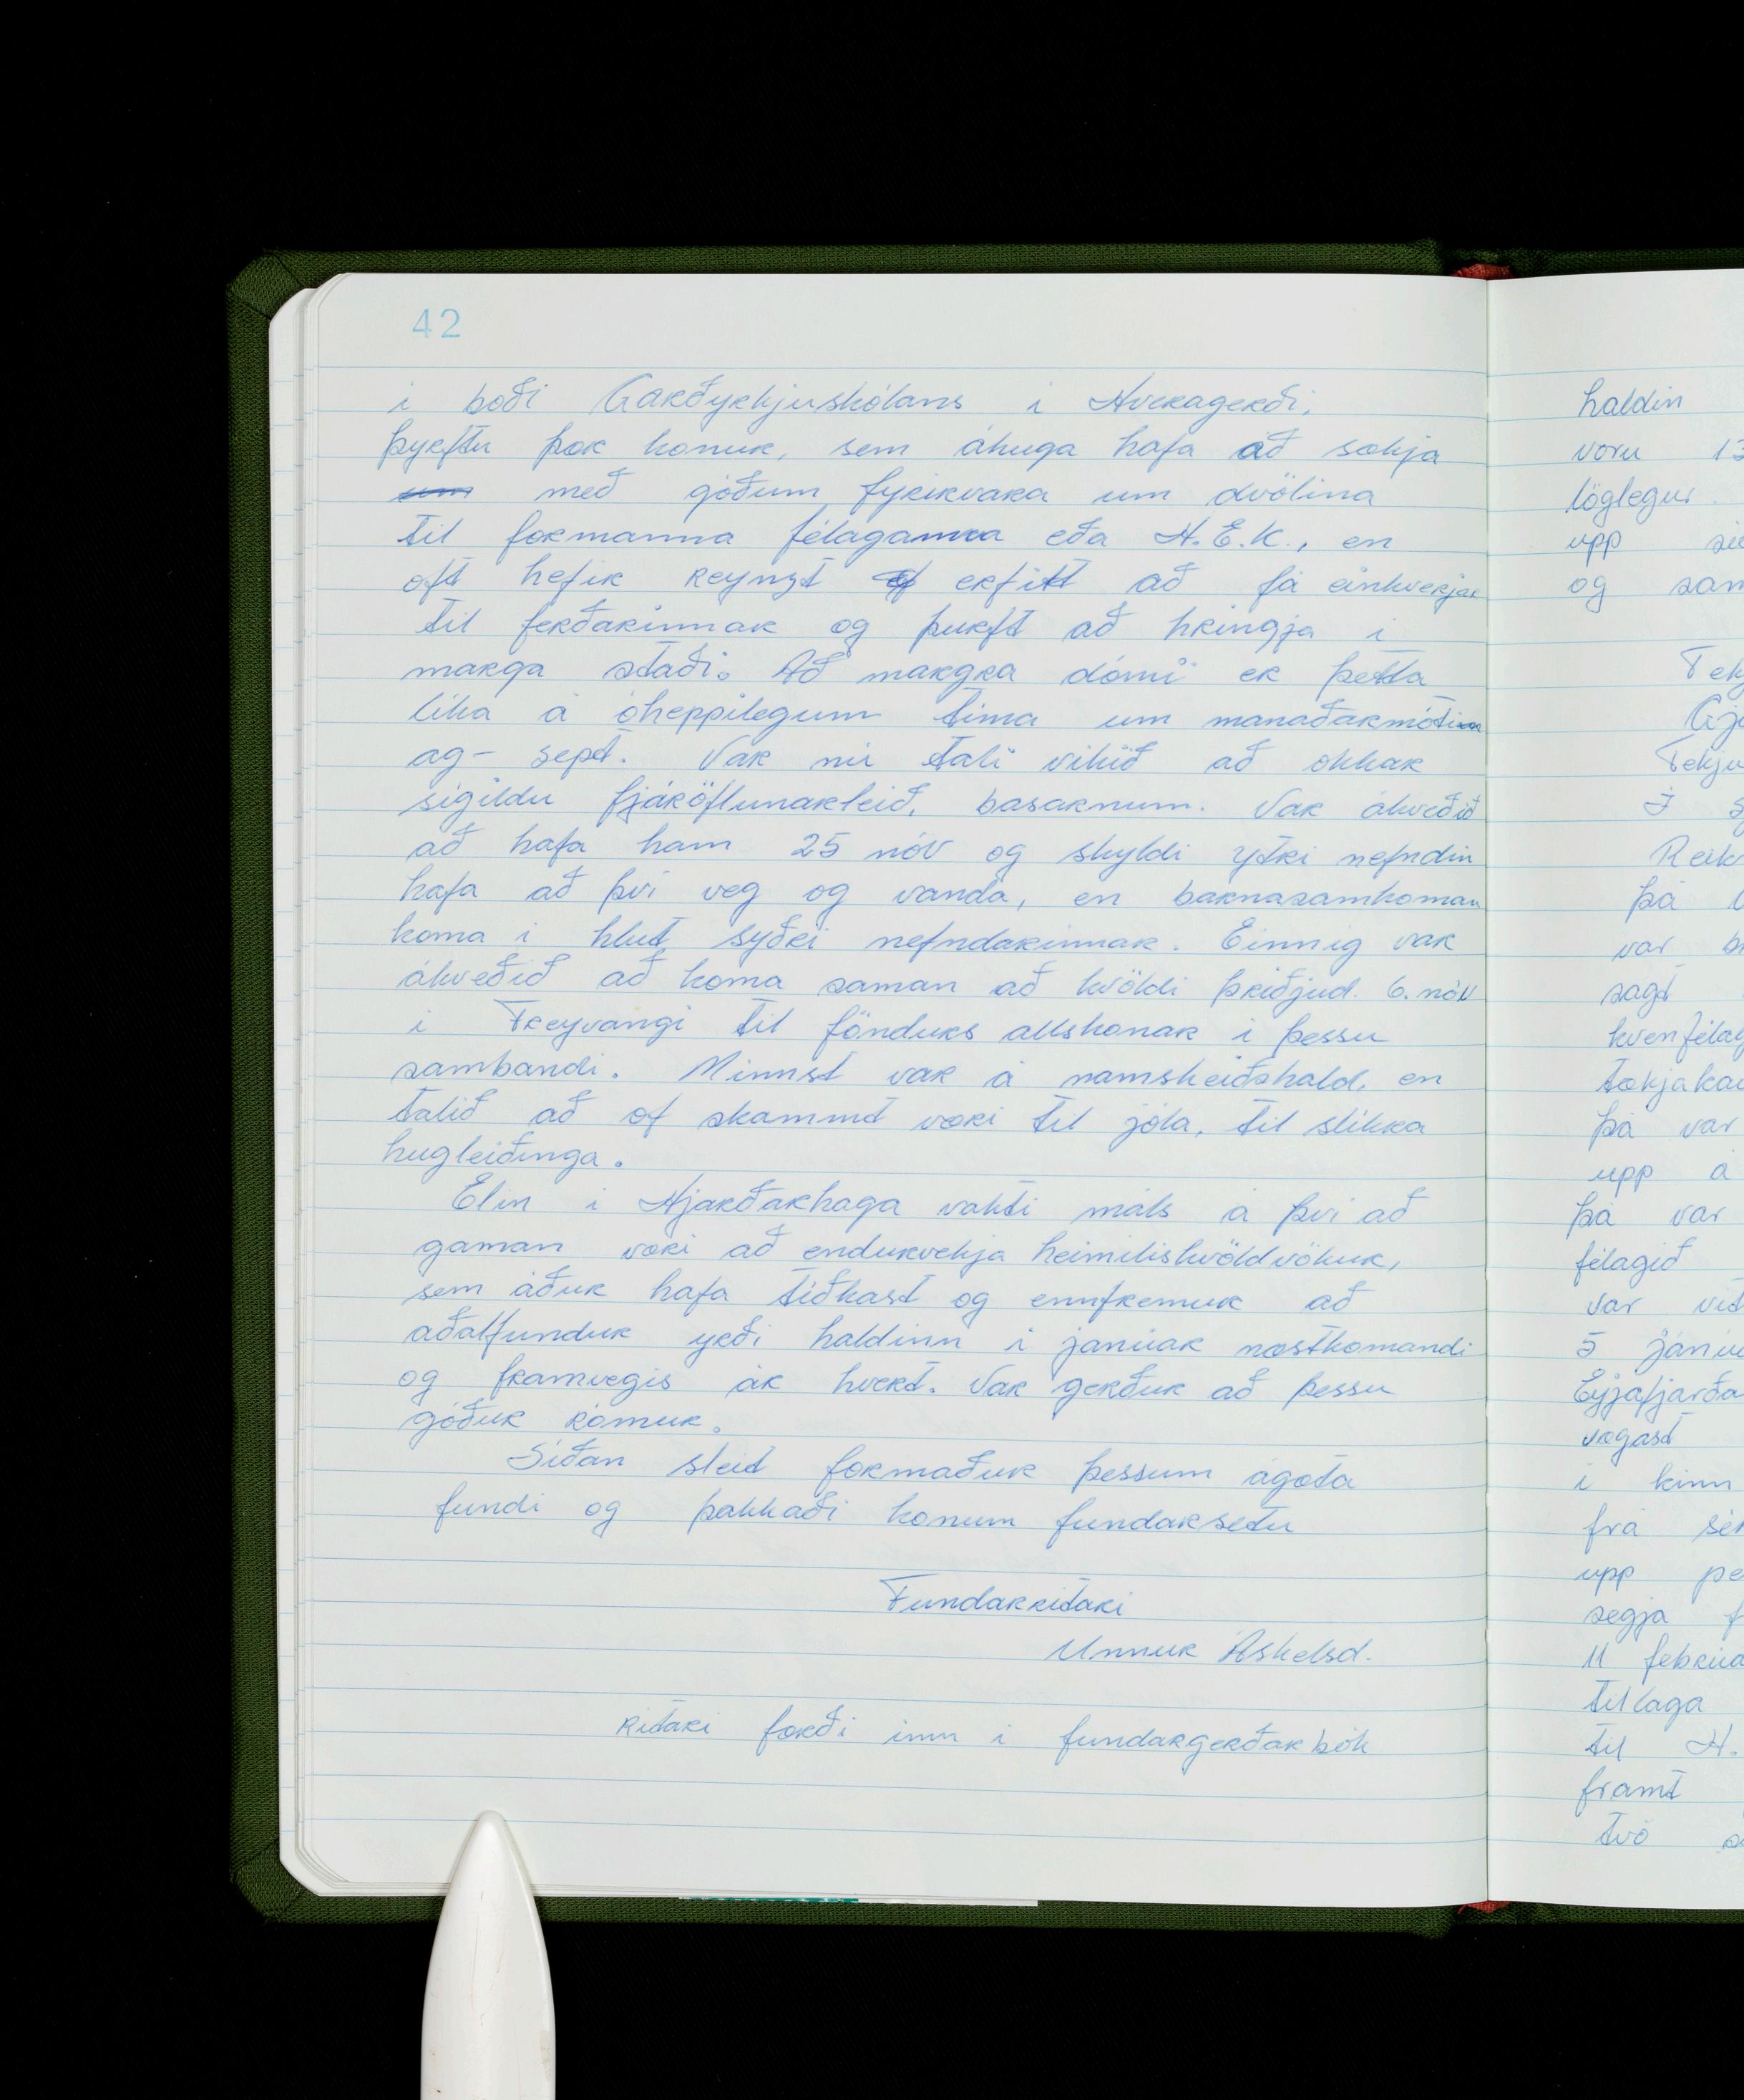 42
í boði Garðyrkjuskólans í Hveragerði.
þyrftu þær konur, sem áhuga hafa að sækja
um með góðum fyrirvara um dvölina
til formanna félaganna eða H.E.K., en
oft hefir reynst erfitt að fá einhverjar
til ferðarinnar og þurft að hringja í
marga staði. Að margra dómi er þetta
líka á óheppilegum tíma um mánaðarmótin
ag- sept. Var nú tali vikið að okkar
sígildu fjáröflunarleið, basarnum. Var ákveðið
að hafa hann 25 nóv og skyldi ytri nefndin
hafa að því veg og vanda, en barnasamkoman
koma í hlut syðri nefndarinnar. Einnig var
ákveðið að koma saman að kvöldi þriðjud. 6. nóv
í Freyvangi til föndurs allskonar í þessu
sambandi. Minnst var á námskeiðshald, en
talið að of skammt væri til jóla, til slíkra
hugleiðinga.
Elín í Hjarðarhaga vakti máls á því að
gaman væri að endurvekja heimiliskvöldvökur,
sem áður hafa tíðkast og ennfremur að
aðalfundur yrði haldinn í janúar næstkomandi
og framvegis ár hvert. Var gerður að þessu
góður rómur.
Síðan sleit formaður þessum ágæta
fundi og þakkaði konum fundarsetu
Fundarritari
Unnur Áskelsd.
Ritari færði inn í fundargerðarbók
haldin
voru 13
löglegur.
upp
og
Tekju
I
þá
var
sagt
kvenfélag
þá var
upp á
þá var
félagið
var
5 janú
Eyjafjarða
vegast
í kinn
frá
upp
segja
11 febrúa
tillaga
til H.
framt
tvö